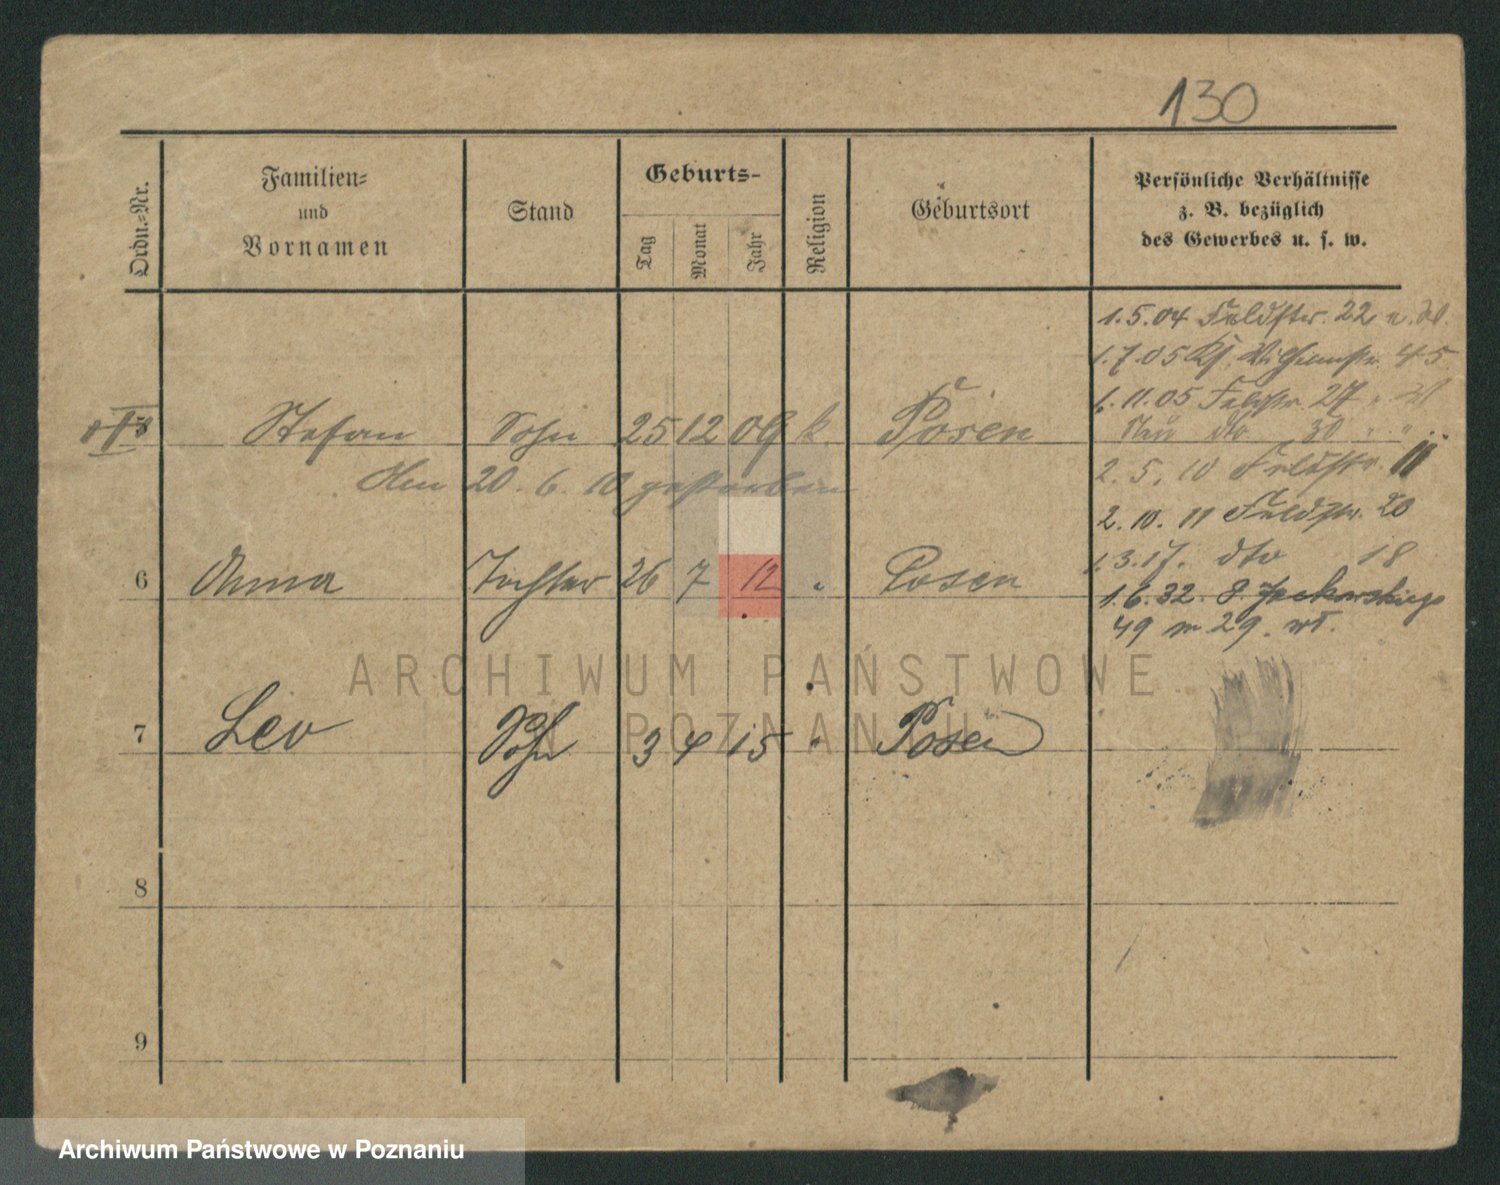 130
Ordn.-Nr.
Familien-
und
Vornamen
Stand
Geburts-
Tag
Monat
Jahr
Religion
Geburtsort
Persönliche Verhältnisse
z. B. bezüglich
des Gewerbes u. s. w.
1.5.04 Feldstr. 22
1.7.05 Wilhelmstr. 45
1.11.05 Feldstr 27
dto 30
2.5.10 Feldstr. 11
2.10.11 Feldstr. 20
1.3.17. dto 18
1.6.32. Jackowskiego
49 m 29.
5 Stefan Sohn 25 12 09 k. Posen
Am 20.6.10 gestorben
6 Anna Tochter 26 7 12 " Posen
7 Leo Sohn 3 4 15 " Posen
8
9
ARCHIWUM PAŃSTWOWE
W POZNANIU
Archiwum Państwowe w Poznaniu